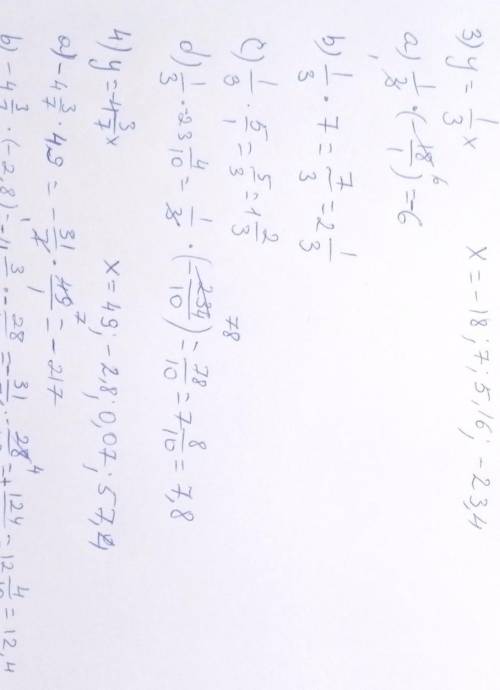 3) y = 1/3 x    x = -18; 7; 5,16; -23,4
a) 1/3 · (-18/1) = -6
b) 1/3 · 7 = 7/3 = 2 1/3
c) 1/3 · 5/1 = 5/3 = 1 2/3
d) 1/3 · -23 4/10 = 1/3 · (-234/10) = 78/10 = 7 8/10 = 7,8
4) y = -4 3/7 x    x = 49; -2,8; 0,07; 57,4
a) -4 3/7 · 49 = -31/7 · 49/1 = -217
b) -4 3/7 · (-2,8) = -4 3/7 · -28 = -31 · -28 = +124 = 12 4/10 = 12,4